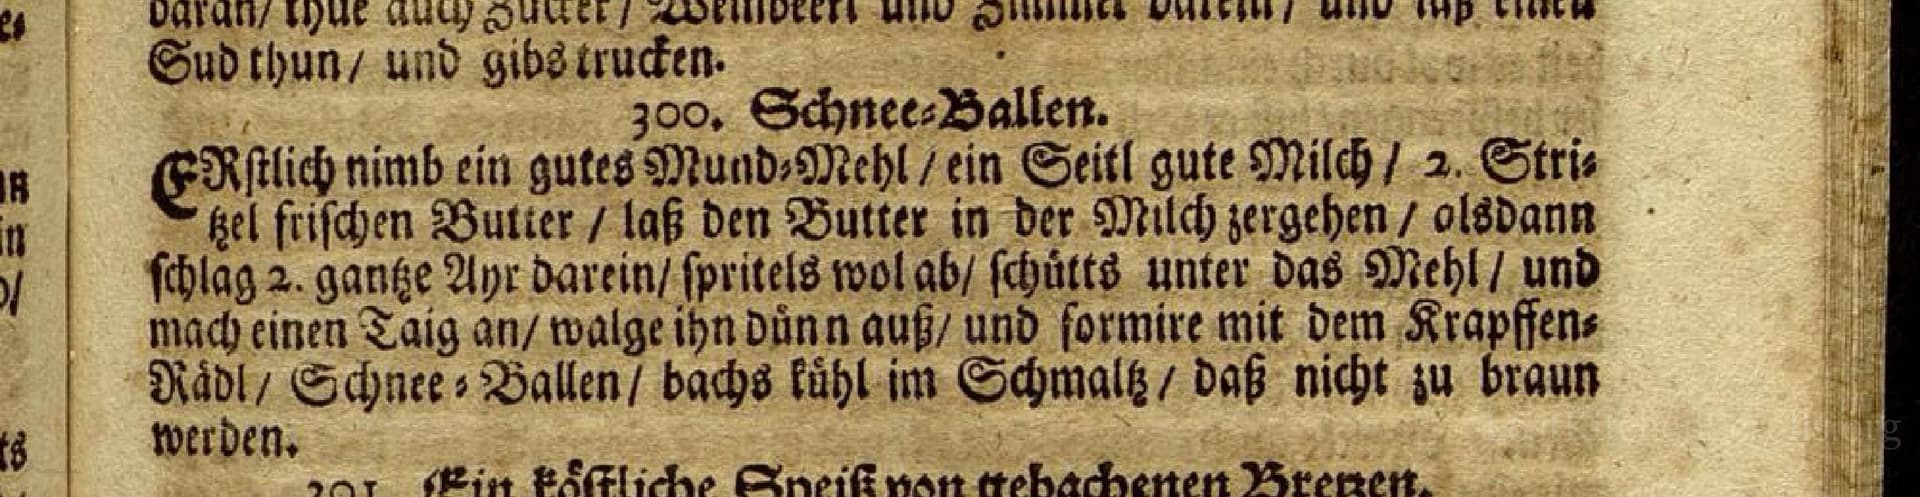 daran/ thue auch Zucker / Weinbeerl und Zimmet darein / und laß einen
Sud thun/ und gibs trucken.
300. Schnee-Ballen.
ERstlich nimb ein gutes Mund-Mehl / ein Seitl gute Milch / 2. Stri-
tzel frischen Butter / laß den Butter in der Milch zergehen / olsdann
schlag 2. gantze Ayr darein/ spritels wol ab/ schütts unter das Mehl / und
mach einen Taig an/ walge ihn dünn auß/ und formire mit dem Krapffen-
Rädl / Schnee-Ballen / bachs kühl im Schmaltz / daß nicht zu braun
werden.
301. Ein köstliche Speiß von gebachenen Bretzen.